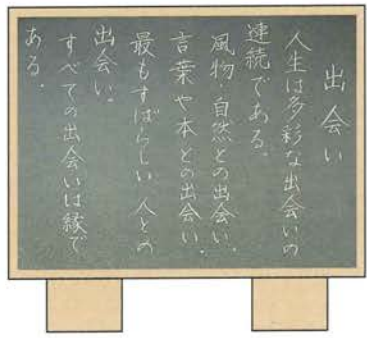 出会い
人生は多彩な出会いの
連続である。
風物・自然との出会い。
言葉や本との出会い。
最もすばらしい人との
出会い。
すべての出会いは縁で
ある。